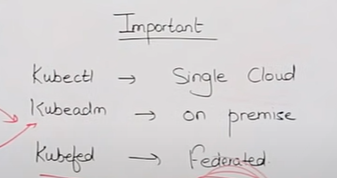 Important
Kubectl → Single Cloud
Kubeadm → on premise
Kubefed → Federated.